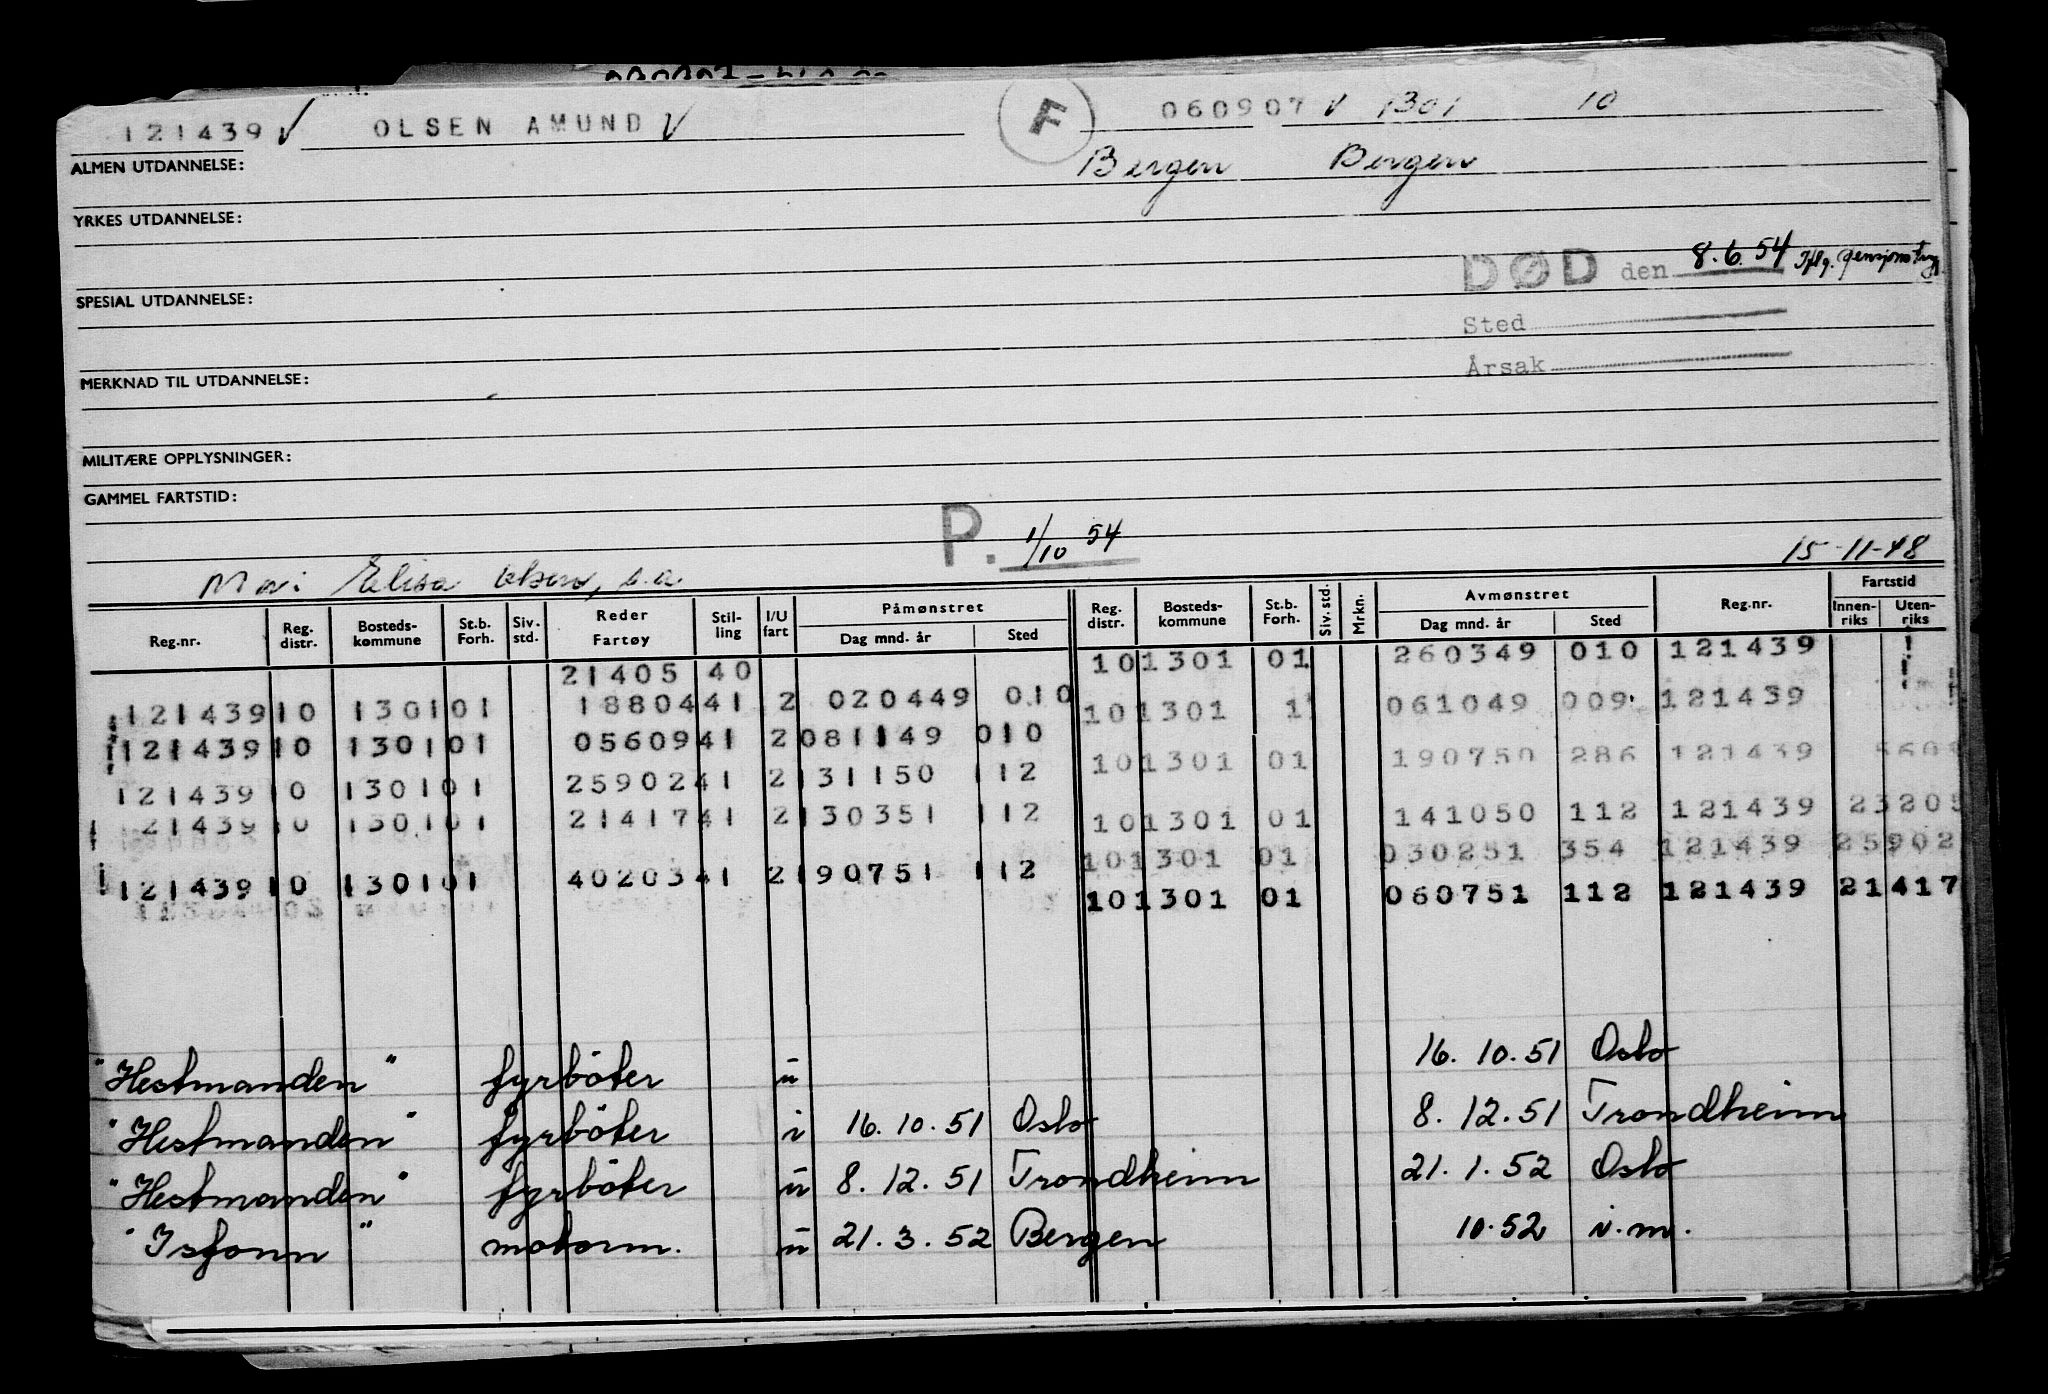 121439 V OLSEN AMUND V F 060907 V 1301 10
ALMEN UTDANNELSE: Bergen Bergen
YRKES UTDANNELSE:
DØD den 8.6.54
SPESIAL UTDANNELSE:
Sted
Årsak
MERKNAD TIL UTDANNELSE:
MILITÆRE OPPLYSNINGER:
GAMMEL FARTSTID:
P. 1/10 54
15-11-48
Mor: Elisa Olsen, s.a.
Reg.nr. Reg. distr. Bosteds- kommune St.b. Forh. Siv. std. Reder Fartøy Stil- ling I/U fart Påmønstret Dag mnd. år Sted Reg. distr. Bosteds- kommune St.b. Forh. Siv. std. Mrkn. Avmønstret Dag mnd. år Sted Reg.nr. Fartstid Innen- riks Uten- riks
21405 40 10 1301 01 260349 010 121439
121439 10 1301 01 18804 41 2 020449 010 10 1301 1 061049 009 121439
121439 10 1301 01 05609 41 2 081149 010 10 1301 01 190750 286 121439
121439 10 1301 01 25902 41 2 131150 112 10 1301 01 141050 112 121439 23205
21439 10 1301 01 21417 41 2 130351 112 10 1301 01 030251 354 121439 25902
121439 10 1301 01 40203 41 2 190751 112 10 1301 01 060751 112 121439 21417
"Hestmanden" fyrböter u 16.10.51 Oslo
"Hestmanden" fyrböter i 16.10.51 Oslo 8.12.51 Trondheim
"Hestmanden" fyrböter u 8.12.51 Trondheim 21.1.52 Oslo
"Isfonn" motorm. u 21.3.52 Bergen 10.52 i.m.